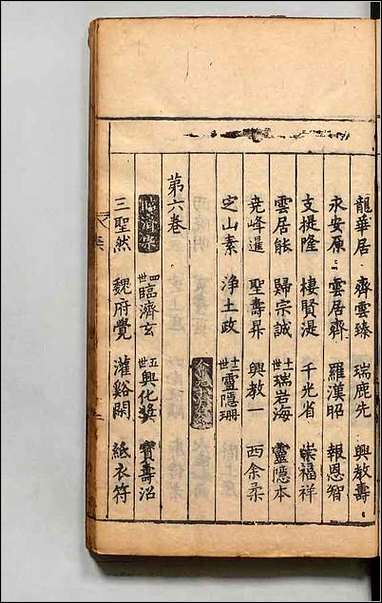 龍華居 齊雲臻 瑞鹿先 興教壽
永安原 雲居齊 羅漢昭 報恩智
支提隆 棲賢湜 千光省 崇福祥
雲居能 歸宗誠 十一世瑞岩海 靈隱本
堯峰暹 聖壽昇 興教一 西余柔
定山素 淨土政 十二世靈隱珊
第六卷
臨濟宗 四世臨濟玄 五世興化獎 寶壽沼
三聖然 魏府覺 灌谿閑 紙衣符